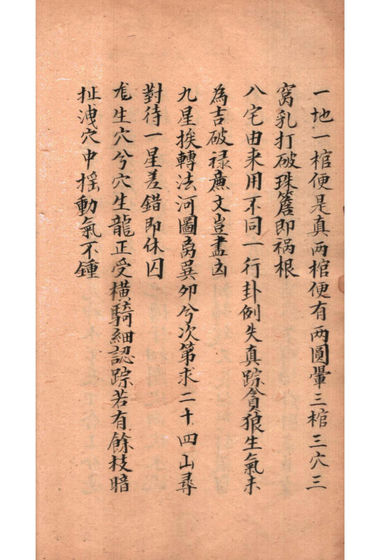 一地一棺便是真两棺便有两圓暈三棺三穴三
窩乳打破珠簷即禍根
八宅由来用不同一行卦例失真踪貪狼生氣未
為吉破禄廉文豈盡凶
九星挨轉法河圖离巽卯兮次第求二十四山尋
對待一星差錯即休囚
龙生穴兮穴生龍正受橫騎細認踪若有餘枝暗
扯洩穴中摇動氣不鍾